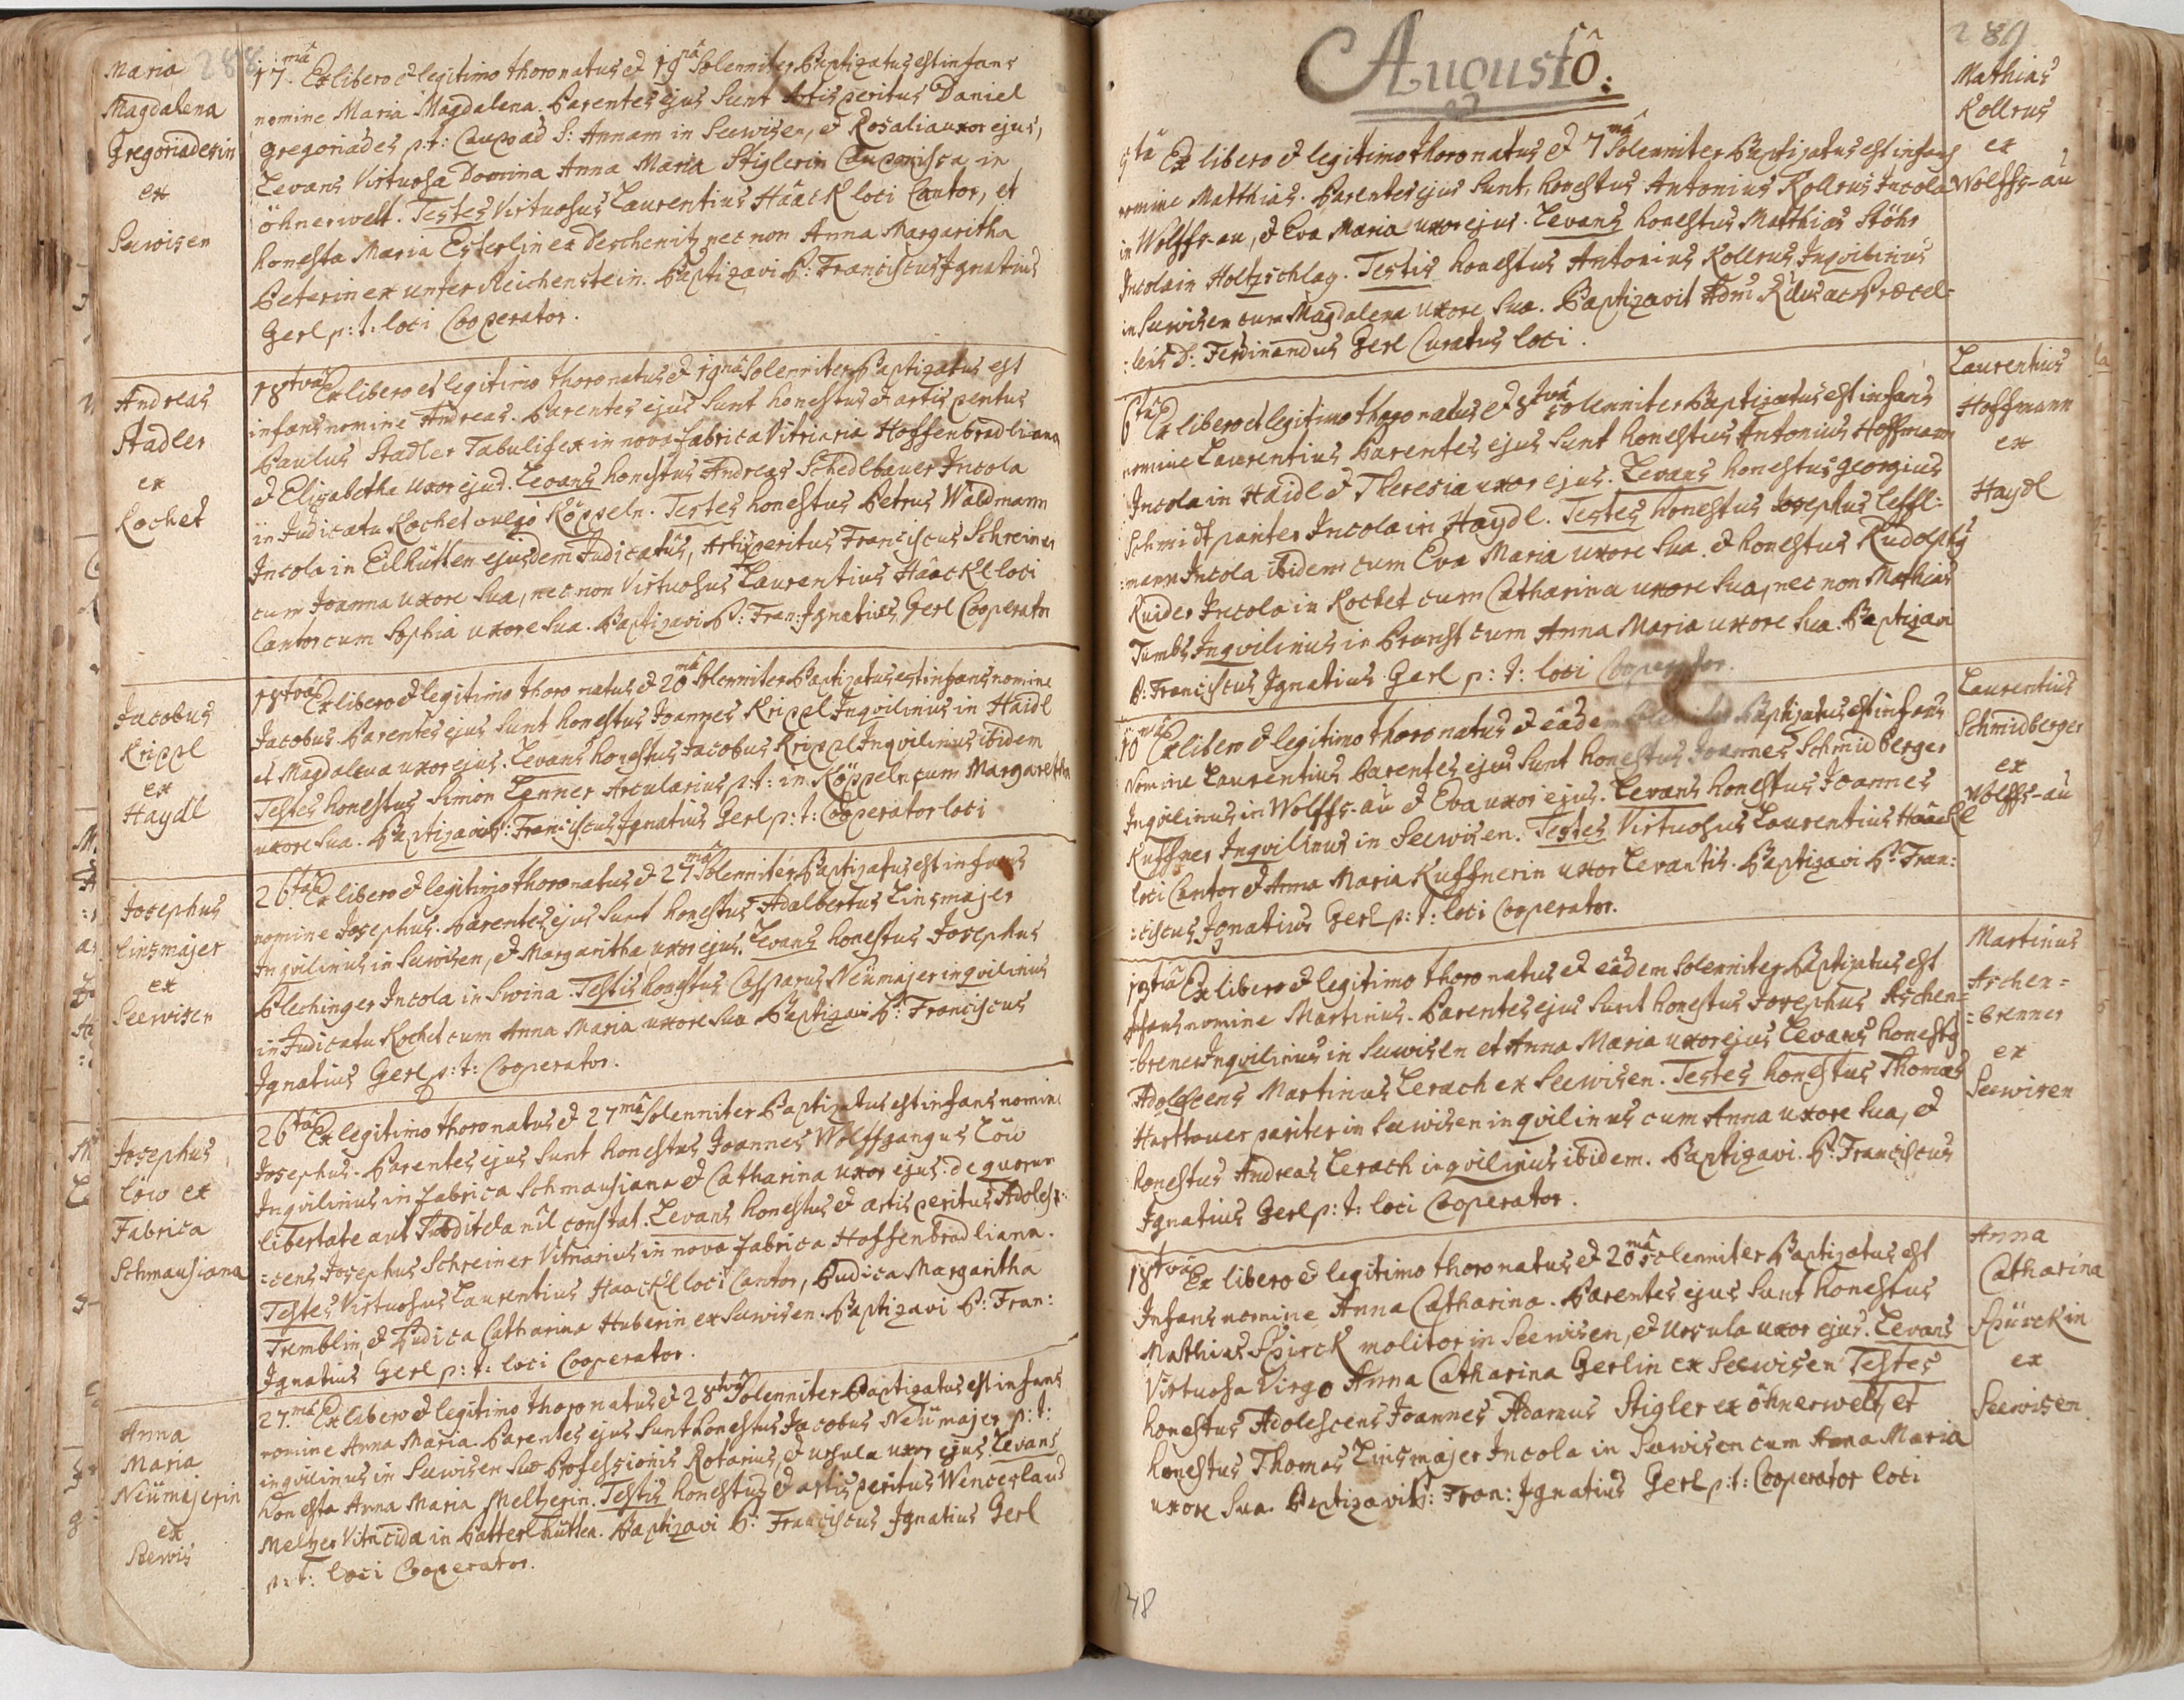 288
Maria
Magdalena
Gregoriadesin
ex
Seewisen
17.mâ Ex libero & legitimo thoro natus & 19nâ Solenniter Baptizatus est infans
nomine Maria Magdalena. Parentes ejus Sunt Artis peritus Daniel
Gregoriades p:t: Caupo ad S: Annam in Seewisen, & Rosalia uxor ejus,
Levans Virtuosa Domina Anna Maria Stiglerin Cauponissa in
öhnerwelt. Testes Virtuosus Laurentius Hââckl loci Cantor, et
honesta Maria Esterlin ex Deschenitz nec non Anna Margaritha
Peterin ex unter Reichenstein. Baptizavi P: Franciscus Ignatius
Gerl p: t: loci Cooperator.
Andreas
Stadler
ex
Kochet
18tvâ Ex libero et legitimo thoro natus & 19nâ Solenniter Baptizatus est
infans nomine Andreas. Parentes ejus Sunt honestus & artis peritus
Paulus Stadler Tabulifex in nova fabrica Vitriaria Hoffenbradliana
& Elizabetha uxor ejus. Levans honestus Andreas Schedlbauer Incola
in Judicatu Kochet vulgò Köppeln. Testes honestus Petrus Waldmann
Incola in Eilhütten ejusdem Judicatûs, Artis peritus Franciscus Schreiner
cum Joanna uxore sua, nec non Virtuosus Laurentius Hââckl loci
Cantor cum Sophia uxore sua. Baptizavi P: Fran: Ignatius Gerl Cooperator
Jacobus
Krippl
ex
Haydl
18tvâ Ex libero & legitimo thoro natus & 20mâ Solenniter Baptizatus est infans nomine
Jacobus Parentes ejus Sunt honestus Joannes Krippl Inqvilinus in Haidl
et Magdalena uxor ejus. Levans honestus Jacobus Krippl Inqvilinus ibidem
Testes honestus Simon Lenner Arcularius p:t: in Köppeln cum Margaretha
uxore Sua. Baptizavi P: Franciscus Ignatius Gerl p: t: Cooperator loci
Josephus
Linsmajer
ex
Seewisen
26tâ Ex libero & legitimo thoro natus & 27mâ Solenniter Baptizatus est infans
nomine Josephus. Parentes ejus Sunt honestus Adalbertus Linsmajer
Inqvilinus in Seewisen, & Margaritha uxor ejus. Levans honestus Josephus
Plechinger Incola in Swina. Testis honestus Casparus Neümajer inqvilinus
in Judicatu Kochet cum Anna Maria uxore sua Baptizavi P: Franciscus
Ignatius Gerl p: t: Cooperator.
Josephus
Löw ex
Fabrica
Schmausiana
26tâ Ex legitimo thoro natus & 27mâ Solenniter Baptizatus est infans nomine
Josephus. Parentes ejus Sunt honestus Joannes Wolffgangus Löw
Inqvilinus in fabrica Schmausiana & Catharina uxor ejus: de quorum
libertate aut Subditela nil constat. Levans honestus & artis peritus Adoles:
:cens Josephus Schreiner Vitriarius in nova fabrica Hoffenbradliana.
Testes Virtuosus Laurentius Haackl loci Cantor, Pudica Margaritha
Tremblin, & Pudica Catharina Huberin ex Seewisen. Baptizavi P: Fran:
Ignatius Gerl p: t: loci Cooperator.
Anna
Maria
Neümajerin
ex
Seewis
27.mâ Ex libero & legitimo thoro natus & 28tvâ Solenniter Baptizatus est infans
nomine Anna Maria. Parentes ejus Sunt honestus Jacobus Neümajer p: t:
inqvilinus in Seewisen suae Professionis Rotarius, & Ursula uxor ejus Levans
honesta Anna Maria Meltzerin. Testis honestus & artis peritus Wenceslaus
Meltzer Vitricida in Patterlhütten. Baptizavi P: Franciscus Ignatius Gerl
p: t: loci Cooperator.
289
Augustô:
Mathias
Kollrus
ex
Wolffs-aù
5tâ Ex libero & legitimo thoro natus & 7mâ Solenniter Baptizatus est infans
nomine Matthias. Parentes ejus Sunt, honestus Antonius Kollrus Incola
in Wolffs-au, & Eva Maria uxor ejus. Levans honestus Matthias Stöhr
Incola in Holtzschlag. Testis honestus Antonius Kollrus Inqvilinus
in Seewisen cum Magdalena uxore Sua. Baptizavit Adm: Rdus ac Praecel:
:lens D: Ferdinandus Gerl Curatus loci.
Laurentius
Hoffmann
ex
Haydl
6tâ Ex libero et legitimo thoro natus & 8tvâ Solenniter Baptizatus est infans
nomine Laurentius Parentes ejus Sunt honestus Antonius Hoffmann
Incola in Haidl & Theresia uxor ejus. Levans honestus Georgius
Schmidt pariter Incola in Haydl. Testes honestus Josephus Leffl:
:mann Incola ibidem cum Eva Maria uxore sua. & honestus Rudolphg
Ruider Incola in Kochet cum Catharina uxore sua, nec non Mathias
Tumbs Inqvilinus in Prunst cum Anna Maria uxore sua. Baptizavi
P: Franciscus Ignatius Gerl p: t: loci Cooperator.
Laurentius
Schmidberger
ex
Wolffs-aù
10mâ Ex libero & legitimo thoro natus & eâdem Solenniter Baptizatus est infans
Nomine Laurentius Parentes ejus Sunt honestus Joannes Schmidberger
Inqvilinus in Wolffs-aù & Eva uxor ejus. Levans honestus Joannes
Kuffner Inqvilinus in Seewisen. Testes Virtuosus Laurentius Hââckl
loci Cantor & Anna Maria Kuffnerin uxor Levantis. Baptizavi P: Fran:
:ciscus Ignatius Gerl p: t: loci Cooperator.
Martinus
Aschen=
=brenner
ex
Seewisen
Ex libero & legitimo thoro natus & eâdem Solenniter Baptizatus est
Infans nomine Martinus. Parentes ejus Sunt honestus Josephus Aschen=
=brener Inqvilinus in Seewisen et Anna Maria uxor ejus Levans honestg
Adolescens Martinus Lerach ex Seewisen. Testes honestus Thomas
Harttauer pariter in Seewisen inqvilinus cum Anna uxore sua, &
honestus Andreas Lerach inqvilinus ibidem. Baptizavi P: Franciscus
Ignatius Gerl p: t: loci Cooperator.
Anna
Catharina
Spürckin
ex
Seewisen
18tvâ Ex libero & legitimo thoro natus & 20mâ Solenniter Baptizatus est
Infans nomine Anna Catharina. Parentes ejus Sunt honestus
Mathias Spirck molitor in Seewisen, & Ursula uxor ejus. Levans
Virtuosa Virgo Anna Catharina Gerlin ex Seewisen Testes
honestus Adolescens Joannes Adamus Stigler ex öhnerwelt, et
honestus Thomas Linsmajer Incola in Seewisen cum Anna Maria
uxore sua. Baptizavit P: Fran: Ignatius Gerl p: t: Cooperator loci
148